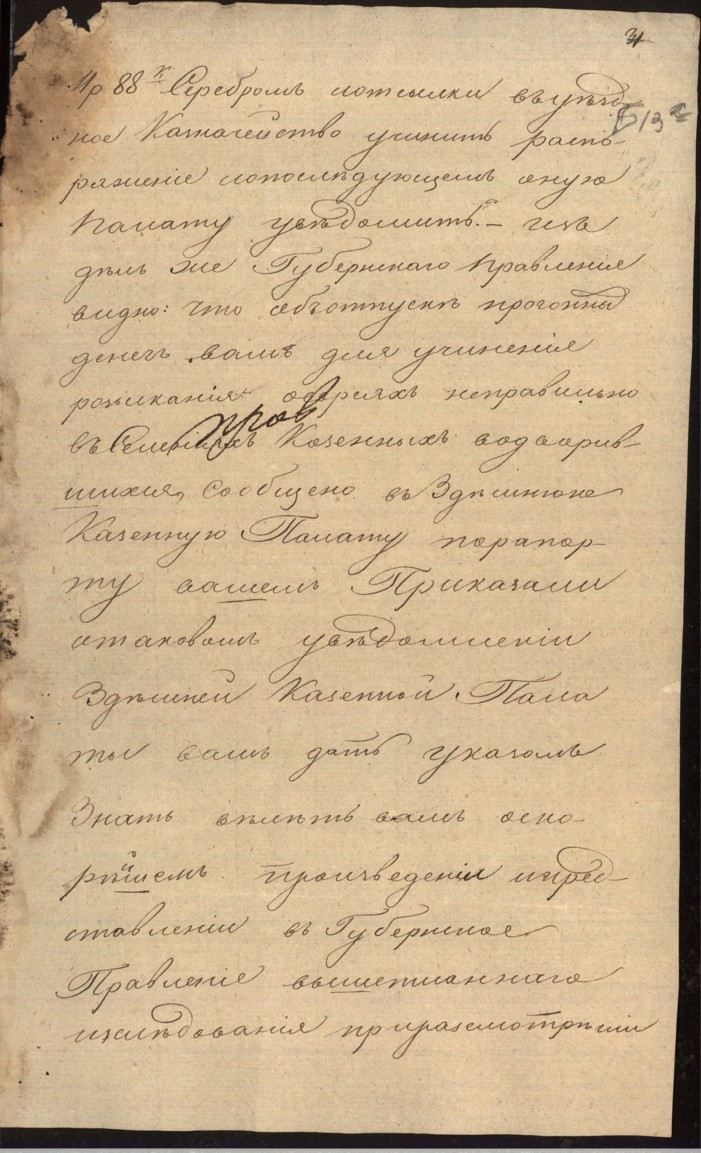 31
Б 13
11 р 88 к Серебромъ иотсылки въ уѣзд-
ное Казначейство учинить распо-
ряженіе ипослѣдующемъ оную
Палату увѣдомить. – изъ
дѣлъ же Губернскаго Правленія
видно: что объотпускѣ прогонны
денегъ вамъ для учиненія
розысканія неправильно
въ Казенныхъ водворив-
шихся, сообщено въ Здѣшнюю
Казенную Палату порапор-
ту вашемъ Приказали
отаковомъ увѣдомленіи
Здѣшней Казенной Пала
ты вамъ дать указомъ
Знать велѣть вамъ оско-
рѣйшемъ произведеніи ипред-
ставленіи въ Губернское
Правленіе вышеписаннаго
изслѣдованія приразсмотрѣніи